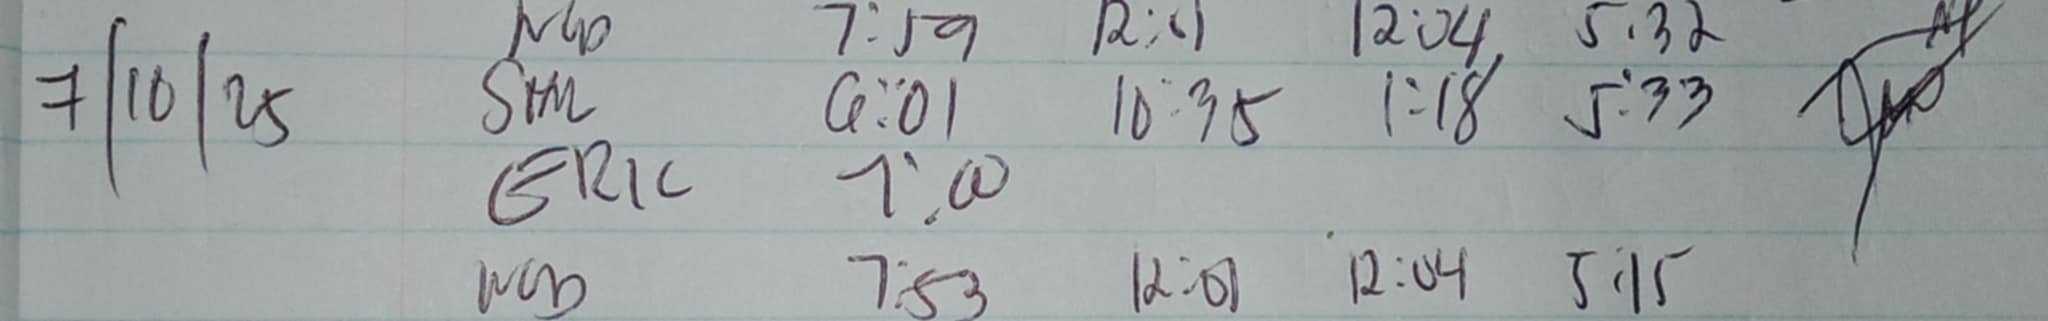 7:59 12:01 12:04 5:32
7/10/25 6:01 10:35 1:18 5:33
ERIC 7:00
7:53 12:01 12:04 5:15